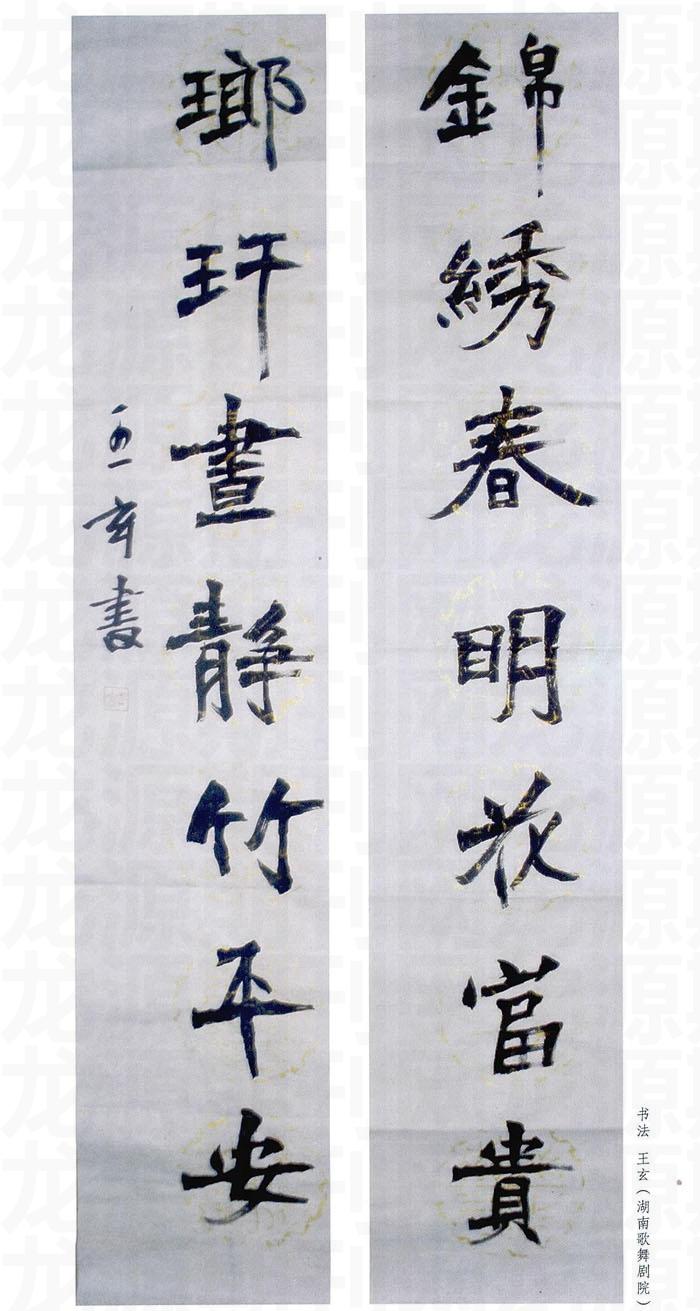 錦綉春明花富貴
瑯玕晝靜竹平安
玄書
书法 王玄(湖南歌舞剧院)